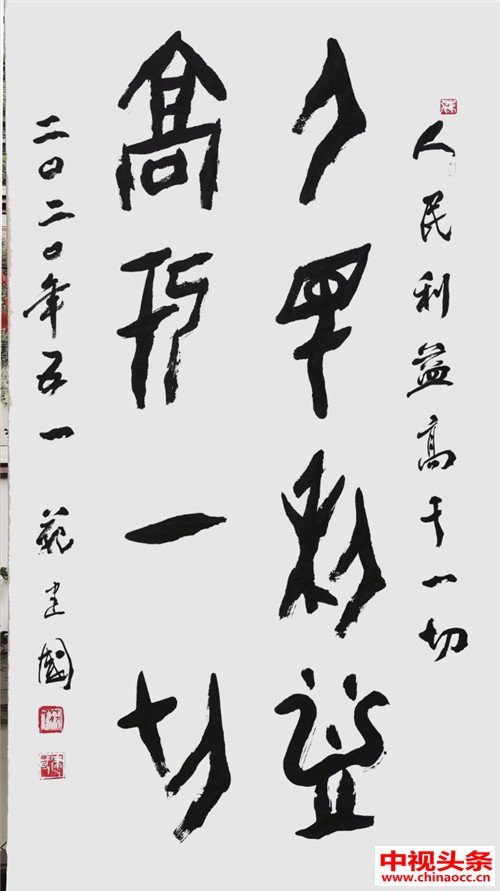 人民利益高于一切
人民利益
高于一切
二〇二〇年五一 范建國
中视头条
www.chinaocc.cn